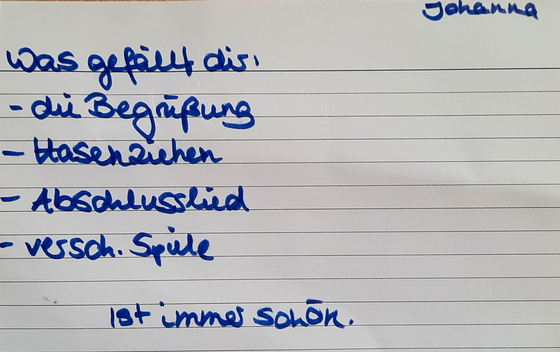 Johanna
Was gefällt dir:
- die Begrüßung
- Hasenziehen
- Abschlusslied
- versch. Spiele
Ist immer schön.